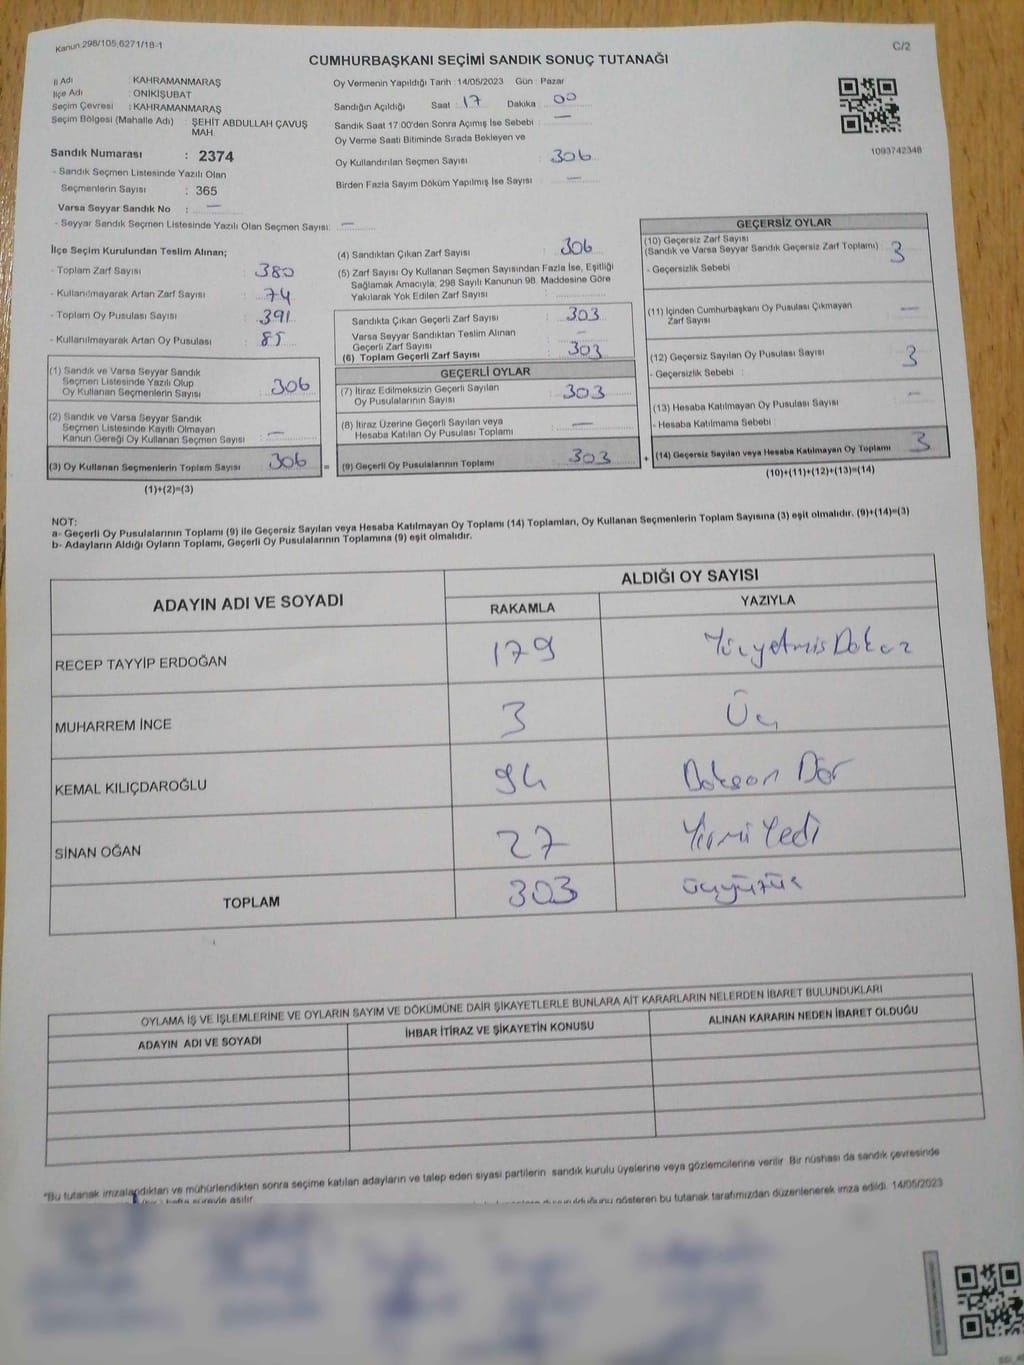 Kanun:298/105,6271/18-1
C/2
CUMHURBAŞKANI SEÇİMİ SANDIK SONUÇ TUTANAĞI
İl Adı : KAHRAMANMARAŞ
İlçe Adı : ONİKİŞUBAT
Seçim Çevresi : KAHRAMANMARAŞ
Seçim Bölgesi (Mahalle Adı) : ŞEHİT ABDULLAH ÇAVUŞ MAH.
Sandık Numarası : 2374
- Sandık Seçmen Listesinde Yazılı Olan
Seçmenlerin Sayısı : 365
Varsa Seyyar Sandık No : —
- Seyyar Sandık Seçmen Listesinde Yazılı Olan Seçmen Sayısı: —
Oy Vermenin Yapıldığı Tarih :14/05/2023 Gün : Pazar
Sandığın Açıldığı Saat : 17 Dakika 00
Sandık Saat 17:00'den Sonra Açımış İse Sebebi : —
Oy Verme Saati Bitiminde Sırada Bekleyen ve
Oy Kullandırılan Seçmen Sayısı : 306
Birden Fazla Sayım Döküm Yapılmış İse Sayısı : —
1093742348
İlçe Seçim Kurulundan Teslim Alınan;
- Toplam Zarf Sayısı : 380
- Kullanılmayarak Artan Zarf Sayısı : 74
- Toplam Oy Pusulası Sayısı : 391
- Kullanılmayarak Artan Oy Pusulası : 85
(1) Sandık ve Varsa Seyyar Sandık
Seçmen Listesinde Yazılı Olup
Oy Kullanan Seçmenlerin Sayısı : 306
(2) Sandık ve Varsa Seyyar Sandık
Seçmen Listesinde Kayıtlı Olmayan
Kanun Gereği Oy Kullanan Seçmen Sayısı : —
(3) Oy Kullanan Seçmenlerin Toplam Sayısı 306 =
(1)+(2)=(3)
(4) Sandıktan Çıkan Zarf Sayısı : 306
(5) Zarf Sayısı Oy Kullanan Seçmen Sayısından Fazla İse, Eşitliği
Sağlamak Amacıyla; 298 Sayılı Kanunun 98. Maddesine Göre
Yakılarak Yok Edilen Zarf Sayısı :
Sandıkta Çıkan Geçerli Zarf Sayısı : 303
Varsa Seyyar Sandıktan Teslim Alınan
Geçerli Zarf Sayısı : —
(6) Toplam Geçerli Zarf Sayısı : 303
GEÇERLİ OYLAR
(7) İtiraz Edilmeksizin Geçerli Sayılan
Oy Pusulalarının Sayısı : 303
(8) İtiraz Üzerine Geçerli Sayılan veya
Hesaba Katılan Oy Pusulası Toplamı : —
(9) Geçerli Oy Pusulalarının Toplamı 303 +
GEÇERSİZ OYLAR
(10) Geçersiz Zarf Sayısı
(Sandık ve Varsa Seyyar Sandık Geçersiz Zarf Toplamı) : 3
- Geçersizlik Sebebi
(11) İçinden Cumhurbaşkanı Oy Pusulası Çıkmayan
Zarf Sayısı —
(12) Geçersiz Sayılan Oy Pusulası Sayısı : 3
- Geçersizlik Sebebi :
(13) Hesaba Katılmayan Oy Pusulası Sayısı : —
- Hesaba Katılmama Sebebi :
(14) Geçersiz Sayılan veya Hesaba Katılmayan Oy Toplamı 3
(10)+(11)+(12)+(13)=(14)
NOT:
a- Geçerli Oy Pusulalarının Toplamı (9) ile Geçersiz Sayılan veya Hesaba Katılmayan Oy Toplamı (14) Toplamları, Oy Kullanan Seçmenlerin Toplam Sayısına (3) eşit olmalıdır. (9)+(14)=(3)
b- Adayların Aldığı Oyların Toplamı, Geçerli Oy Pusulalarının Toplamına (9) eşit olmalıdır.
ADAYIN ADI VE SOYADI ALDIĞI OY SAYISI
RAKAMLA YAZIYLA
RECEP TAYYİP ERDOĞAN 179 Yüzyetmis Dokuz
MUHARREM İNCE 3 Üç
KEMAL KILIÇDAROĞLU 94 Doksan Dör
SİNAN OĞAN 27 Yirmi Yedi
TOPLAM 303 üçyüzüç
OYLAMA İŞ VE İŞLEMLERİNE VE OYLARIN SAYIM VE DÖKÜMÜNE DAİR ŞİKAYETLERLE BUNLARA AİT KARARLARIN NELERDEN İBARET BULUNDUKLARI
ADAYIN ADI VE SOYADI İHBAR İTİRAZ VE ŞİKAYETİN KONUSU ALINAN KARARIN NEDEN İBARET OLDUĞU
*Bu tutanak imzalandıktan ve mühürlendikten sonra seçime katılan adayların ve talep eden siyasi partilerin sandık kurulu üyelerine veya gözlemcilerine verilir. Bir nüshası da sandık çevresinde
hafta süreyle asılır.
duyurulduğunu gösteren bu tutanak tarafımızdan düzenlenerek imza edildi. 14/05/2023